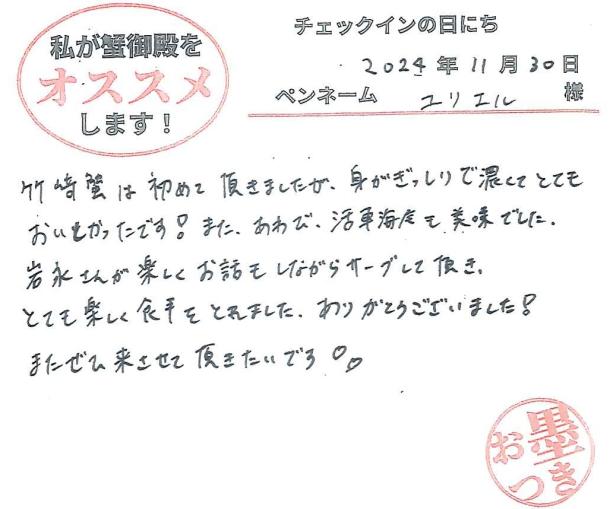 私が蟹御殿を
オススメ
します!
チェックインの日にち
2024年11月30日
ペンネーム ユリエル 様
竹崎蟹は初めて頂きましたが、身がぎっしりで濃くてとても
おいしかったです!また、あわび、活車海老も美味でした。
岩永さんが楽しくお話をしながらサーブして頂き、
とても楽しく食事をとれました。ありがとうございました!
またぜひ来させて頂きたいです
お墨つき